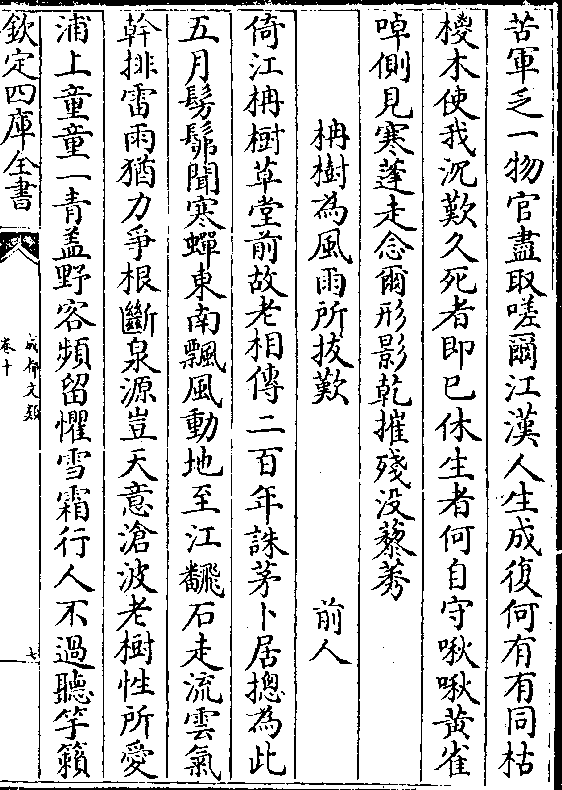 苦軍乏一物官盡取嗟爾江漢人生成復何有有同枯
椶木使我沉歎久死者即已休生者何自守啾啾黄雀
啅側見寒蓬走念爾形影乾摧殘没藜莠
枏樹為風雨所拔歎 前人
倚江枏樹草堂前故老相傳二百年誅茅卜居摠為此
五月髣髴聞寒蟬東南飄風動地至江飜石走流雲氣
幹排雷雨猶力爭根斷泉源豈天意滄波老樹性所愛
浦上童童一青盖野客頻留懼雪霜行人不過聽竽籟
欽定四庫全書
成都文類
卷十
七